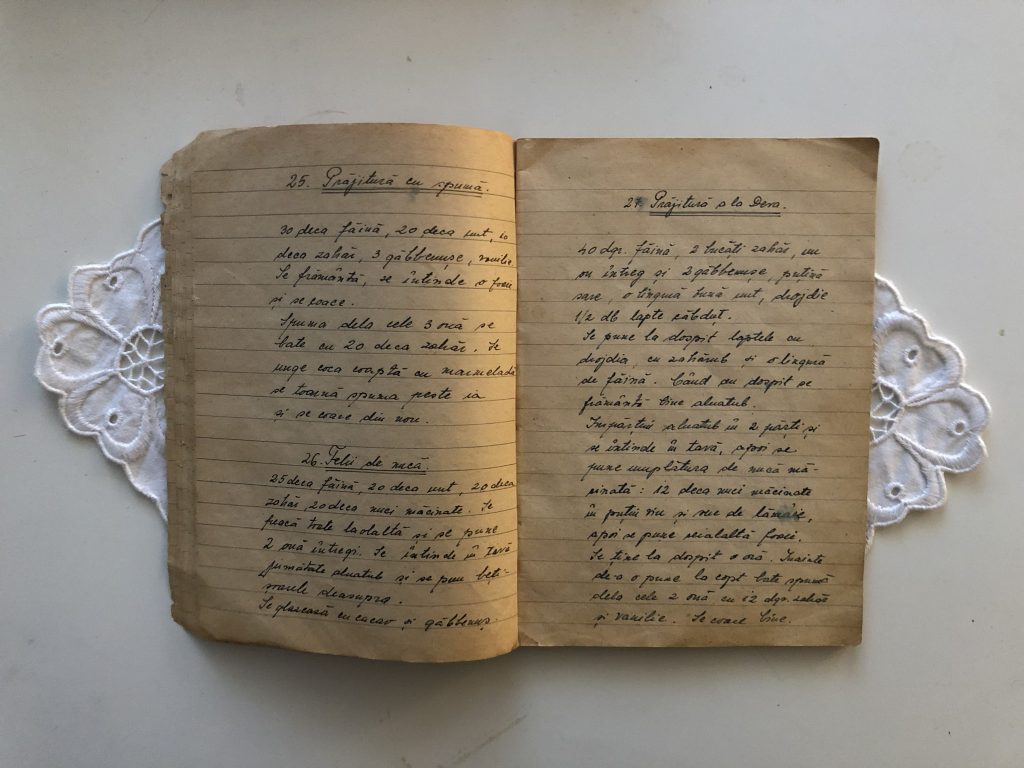 25. Prăjitură cu spumă.
30 deca făină, 20 deca unt, 10
deca zahăr, 3 găbbenușe, vanilie
Se frământă, se întinde o foaie
și se coace.
Spuma dela cele 3 ouă se
bate cu 20 deca zahăr. Se
unge coca coaptă cu marmeladă
se toarnă spuma peste ia
și se coace din nou.
26. Felii de nucă.
25 deca făină, 20 deca unt, 20 deca
zahăr, 20 deca nuci măcinate. Se
freacă toate laolaltă și se pune
2 ouă întregi. Se întinde în tavă
jumătate aluatul și se pun beți-
șoarele deasupra.
Se glasează cu cacao și găbbenuș.
27. Prăjitură a la Deva.
40 dgr. făină, 2 bucăți zahăr, un
ou întreg și 2 găbbenușe, puțină
sare, o lingură bună unt, drojdie
1/2 db lapte călduț.
Se pune la dospit laptele cu
drojdia, cu zahărul și o lingură
de făină. Când au dospit se
frământă bine aluatul.
Împărțim aluatul in 2 părți și
se întinde în tavă, apoi se
pune umplătura de nucă mă-
cinată: 12 deca nuci măcinate
în puțin vin și suc de lămâie,
apoi se pune cealaltă foaie.
Se ține la dospit o oră. Inainte
de-a o pune la copt bate spumă
dela cele 2 ouă cu 12 dgr. zahăr
și vanilie. Se coace bine.